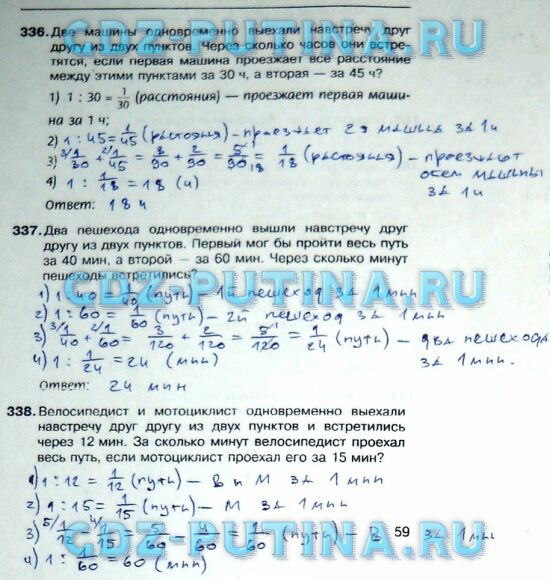 336. Две машины одновременно выехали навстречу друг
другу из двух пунктов. Через сколько часов они встре-
тятся, если первая машина проезжает все расстояние
между этими пунктами за 30 ч, а вторая — за 45 ч?
1) 1 : 30 = 1/30 (расстояния) — проезжает первая маши-
на за 1 ч;
2) 1 : 45 = 1/45 (растояния) – проезжает 2я машина за 1ч
3) 3/1/30 + 2/1/45 = 3/90 + 2/90 = 5/90 18 = 1/18 (растояния) – проезжают
обе машины
4) 1 : 1/18 = 18 (ч) за 1ч
Ответ: 18 ч
337. Два пешехода одновременно вышли навстречу друг
другу из двух пунктов. Первый мог бы пройти весь путь
за 40 мин, а второй — за 60 мин. Через сколько минут
пешеходы встретились?
1) 1 : 40 = 1/40 (путь) – 1й пешеход за 1 мин
2) 1 : 60 = 1/60 (путь) – 2й пешеход за 1 мин
3) 3/1/40 + 2/1/60 = 3/120 + 2/120 = 5/120 = 1/24 (путь) – два пешехода
4) 1 : 1/24 = 24 (мин) за 1 мин.
Ответ: 24 мин
338. Велосипедист и мотоциклист одновременно выехали
навстречу друг другу из двух пунктов и встретились
через 12 мин. За сколько минут велосипедист проехал
весь путь, если мотоциклист проехал его за 15 мин?
1) 1 : 12 = 1/12 (путь) – В и М за 1 мин
2) 1 : 15 = 1/15 (путь) – М за 1 мин
3) 5/1/12 – 4/1/15 = 5/60 – 4/60 = 1/60 (путь) – В за 1 мин
59
4) 1 : 1/60 = 60 (мин)
CDZ-PUTINA.RU
CDZ-PUTINA.RU
CDZ-PUTINA.RU
CDZ-PUTINA.RU
CDZ-PUTINA.RU